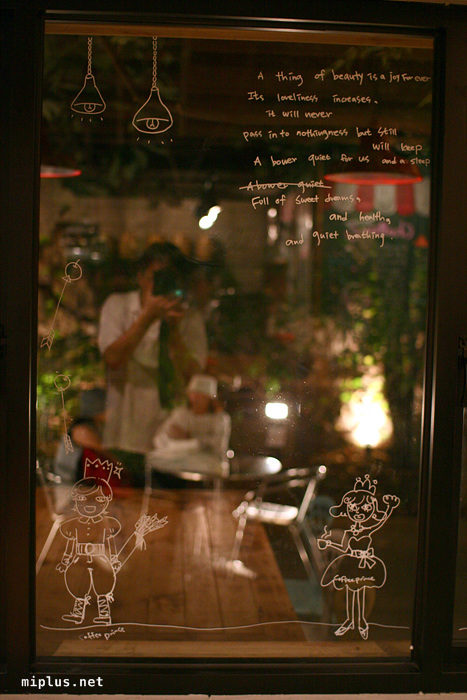 A thing of beauty is a joy forever
Its loveliness inceases.
it will never
pass in to nothingness but still
will keep
A bower quiet for us and a sleep
A bower quiet
Full of sweet dreams,
and health,
and quiet breathing.
Coffee prince
Coffee prince
miplus.net